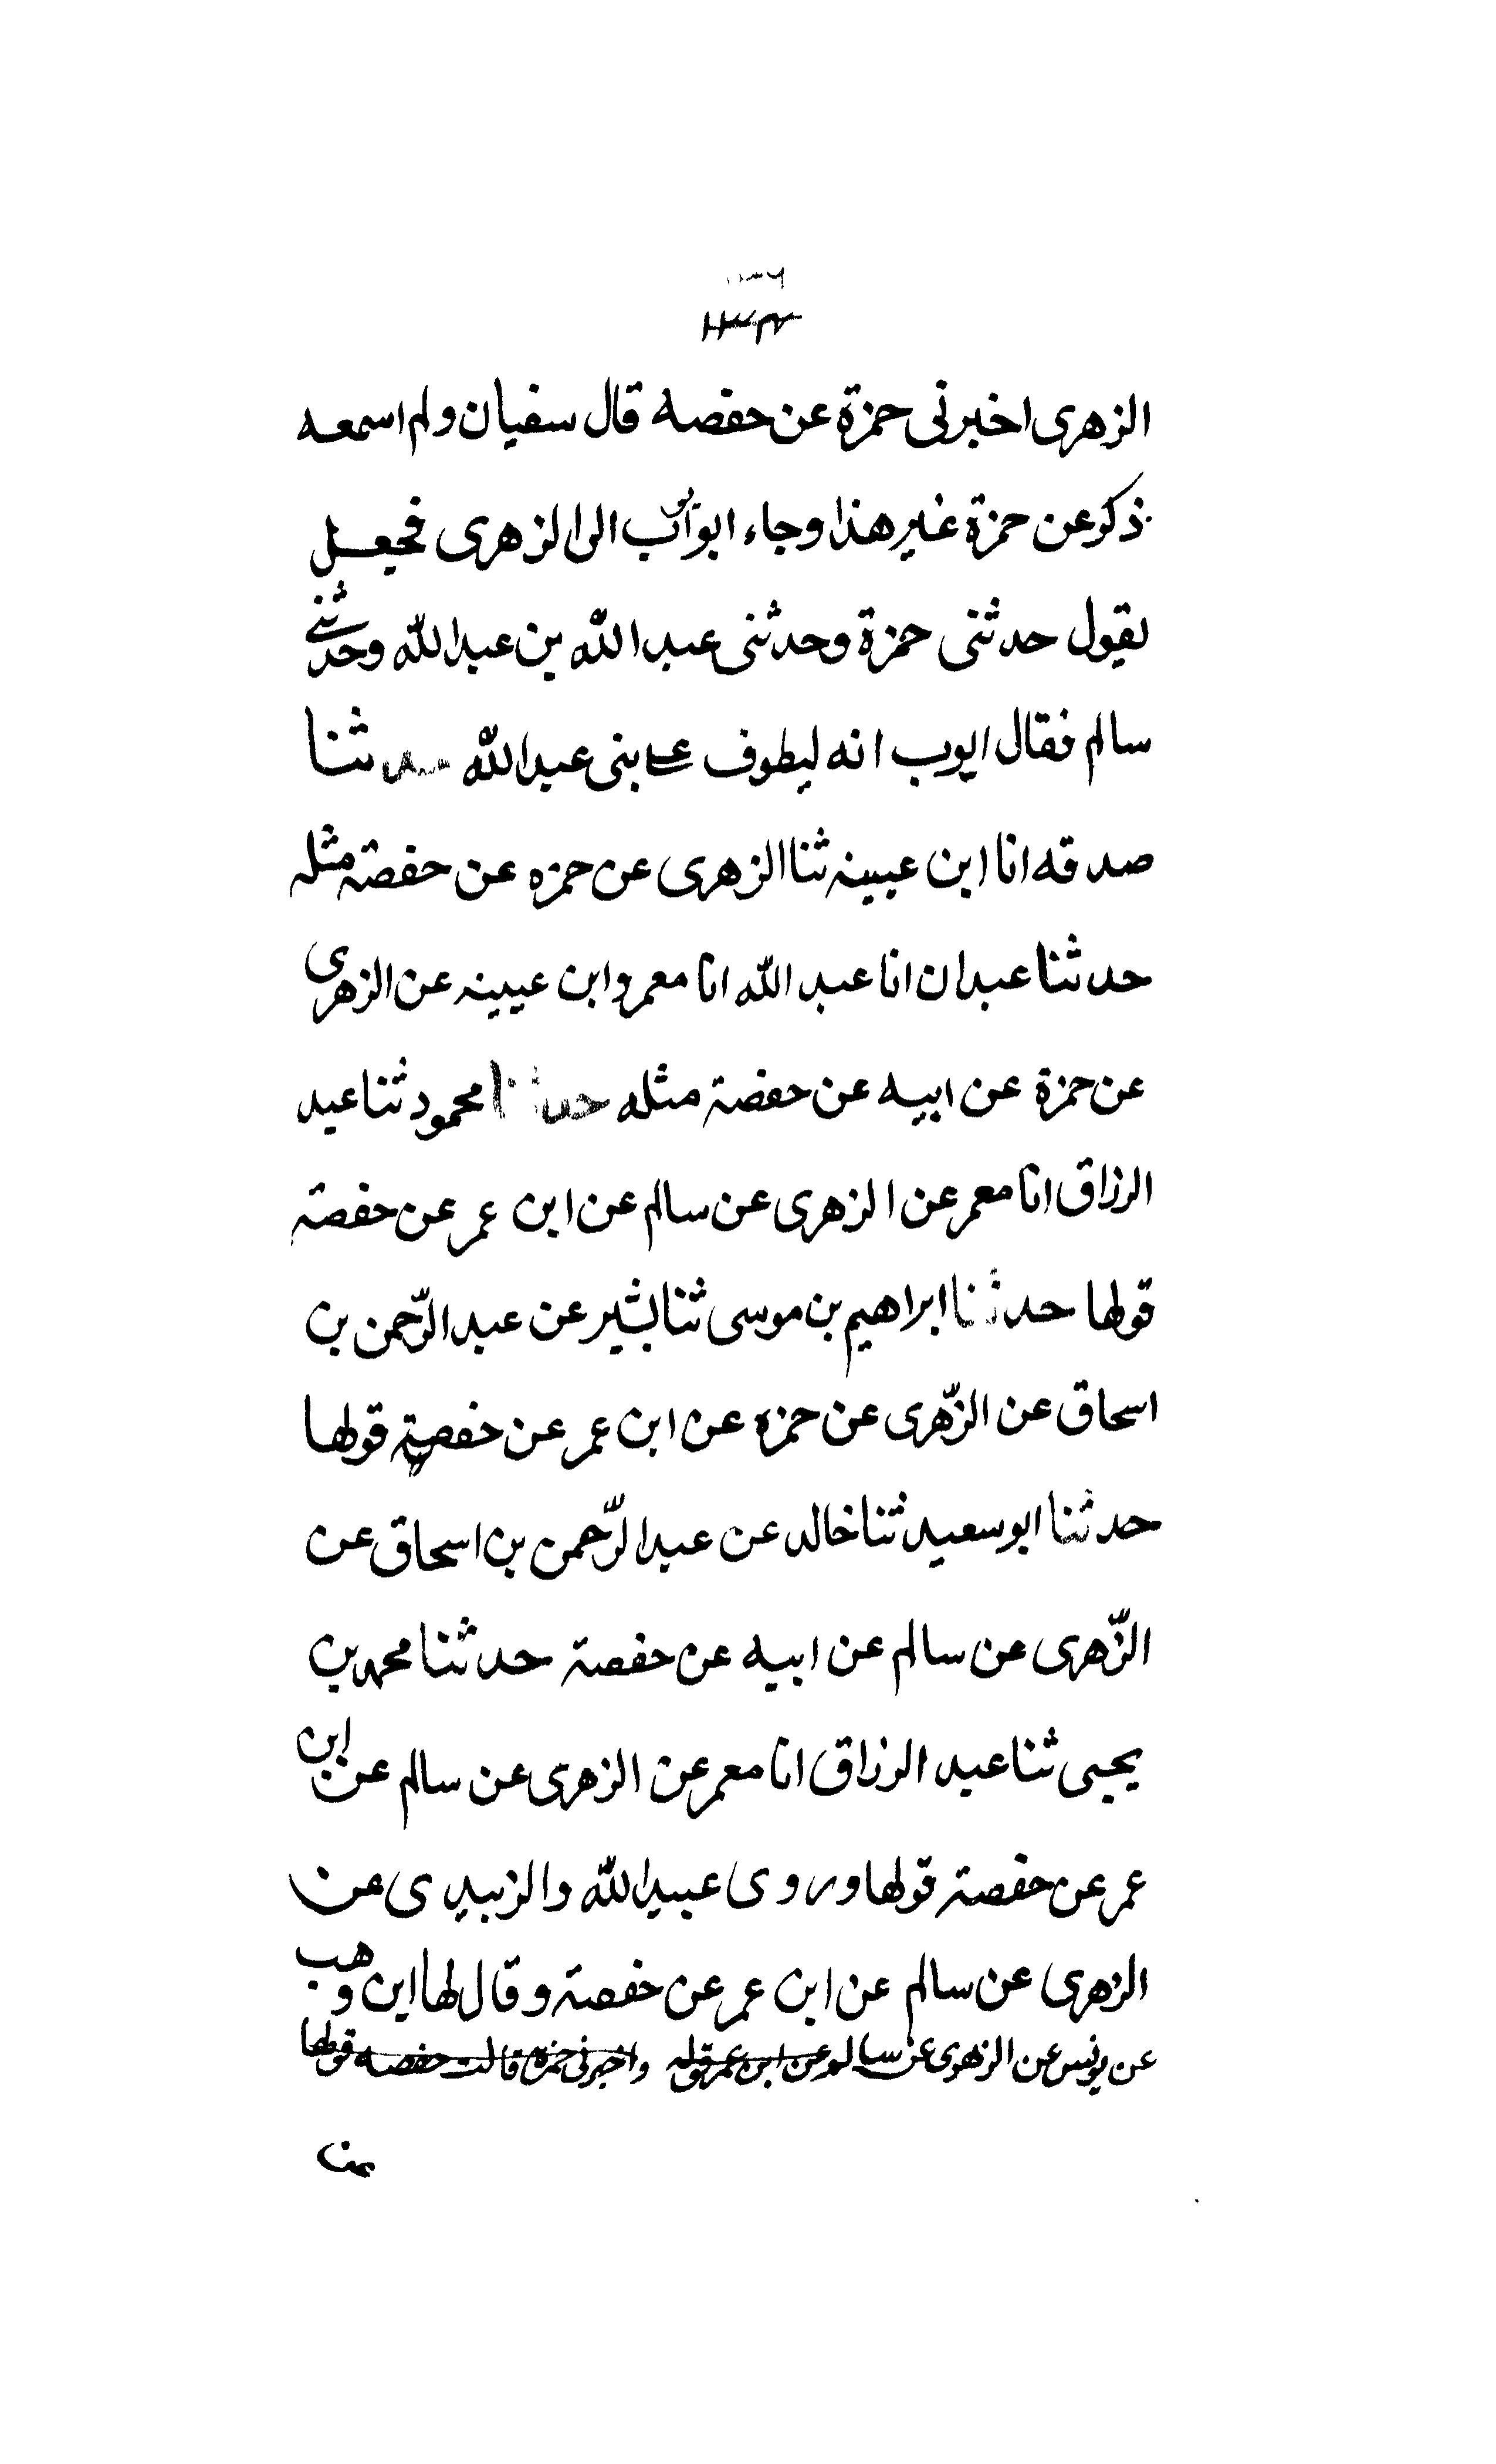 الزهرى اخبرنى حمزة عن حفصه قال سفيان ولم اسمعه
ذكر عن حمزة غير هذا وجاء ابو ايوب الى الزهرى فجعل
يقول حدثنى حمزة وحدثنى عبد الله بن عبد الله وحدثنى
سالم فقال ايوب انه ليطوف على بنى عبد الله حدثنا
صدقه انا ابن عيينه ثنا الزهرى عن حمزه عن حفصة مثله
حدثنا عبدان انا عبد الله انا معمر وابن عيينه عن الزهرى
عن حمزة عن ابيه عن حفصة مثله حدثنا محمود ثنا عبد
الرزاق انا معمر عن الزهرى عن سالم عن ابن عمر عن حفصة
قولها حدثنا ابراهيم بن موسى ثنا بشير عن عبد الرّحمن بن
اسحاق عن الزّهرى عن حمزه عن ابن عمر عن حفصة قولها
حدثنا ابو سعيد ثنا خالد عن عبد الرّحمن بن اسحاق عن
الزّهرى عن سالم عن ابيه عن حفصة حدثنا محمد بن
يحيى ثنا عبد الرزاق انا معمر عن الزهرى عن سالم عن ابن
عمر عن حفصة قولها وروى عبيد الله والزبيدى عن
الزهرى عن سالم عن ابن عمر عن حفصة وقال لها ابن وهب
عن يونس عن الزهرى عن سالم عن ابن عمر قوله واخبرنى حمزة قالت حفصه قولها
عن